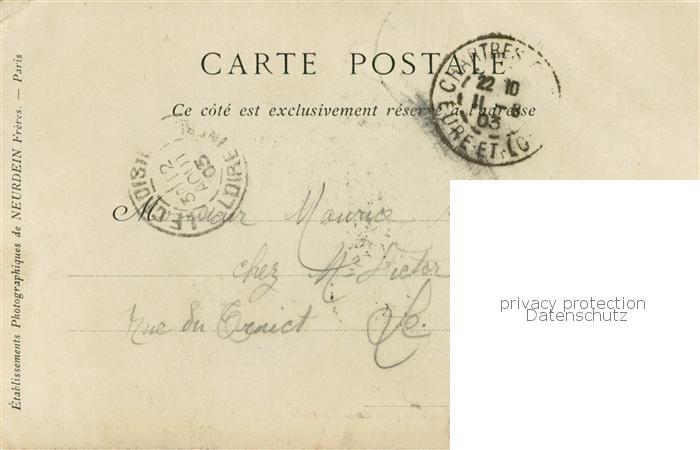 CARTE POSTALE
Ce côté est exclusivement réservé à l'adresse
CHARTRES
22 10
11 -8
03
EURE-ET-LO
12
AOUT
03
Monsieur Maurice
chez Mr Victor
Rue du
Établissements Photographiques de NEURDEIN Frères. — Paris
privacy protection
Datenschutz